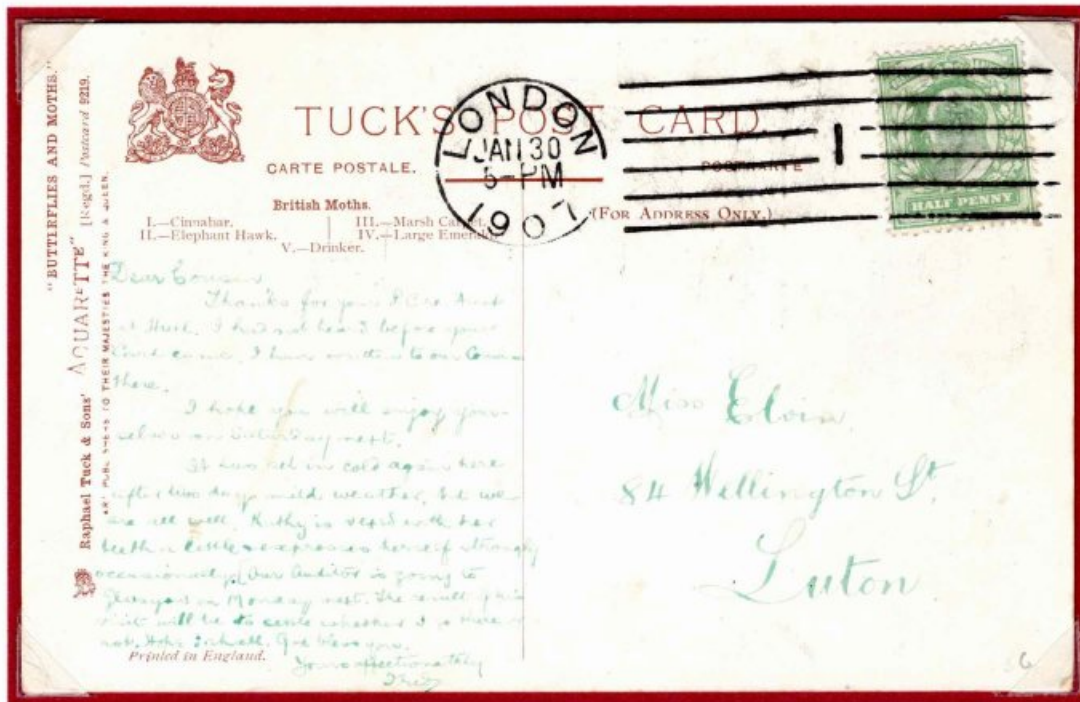 "BUTTERFLIES AND MOTHS."
Raphael Tuck & Sons' "AQUARETTE" [Regd.] Postcard 9219.
ART PUBLISHERS TO THEIR MAJESTIES THE KING & QUEEN.
TUCK'S POST CARD
CARTE POSTALE.
POSTKARTE
British Moths.
I.—Cinnabar.
II.—Elephant Hawk.
III.—Marsh Carpet.
IV.—Large Emerald
V.—Drinker.
(FOR ADDRESS ONLY.)
LONDON
JAN 30
1907
1
HALF PENNY
Dear Cousin
Thanks for your P.C. re Aunt
at I had not heard before your
card came. I have written to our Cousin
there.
I hope you will enjoy your-
selves on Saturday next.
It has set in cold again here
after two days mild weather, but we
are all well. Kathy is with her
teeth a little & expresses herself strongly
occasionally. Our Auditor is going to
Glasgow on Monday next. The result of his
visit will be to settle whether I go there or
not. Hope well. God bless you.
Yours affectionately
Miss Elvin
84 Wellington St.
Luton
Printed in England.
6